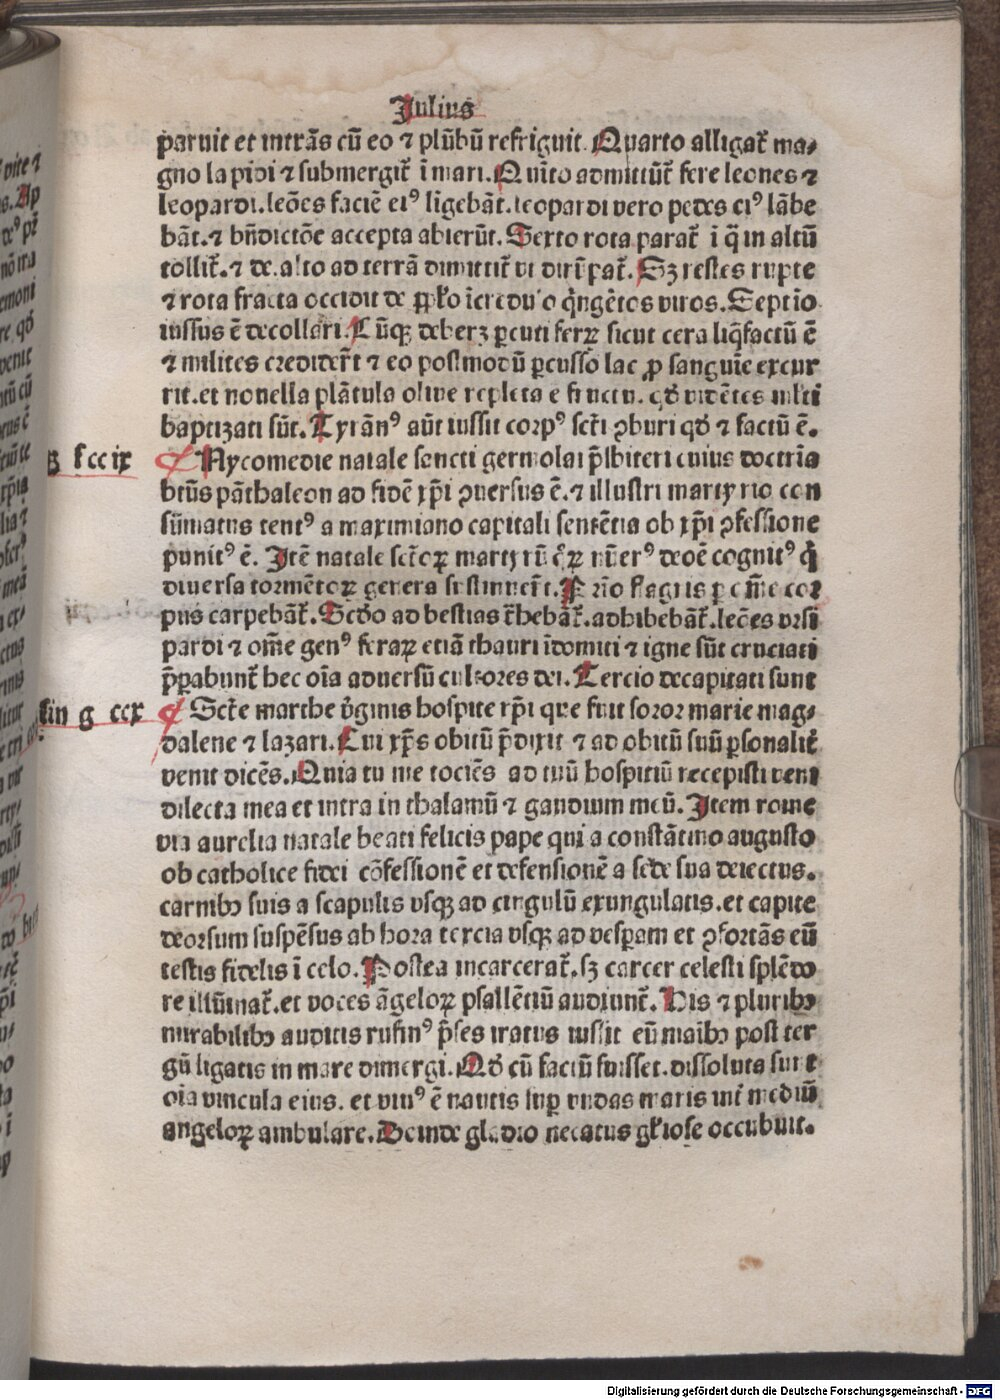 Julius
paruit et intrās cū eo ⁊ plūbū refriguit. Quarto alligat᷒ ma⸗
gno lapidi ⁊ submergit᷒ ī mari. Quīto admittūt᷒ fere leones ⁊
leopardi. leōes faciē eiꝰ ligebāt. leopardi vero pedes eiꝰ lābe
bāt. ⁊ bn̄dictōe accepta abierūt. Sexto rota parat᷒ ī q̄ in altū
tollit᷒. ⁊ de alto ad terrā dimittit᷒ vt dirūpat᷒. Sꝫ restes rupte
⁊ rota fracta occidit de ppl̄o īcredulo q̇ngētos viros. Septīo
iussus ē decollari. Cūqꝫ deberꝫ ꝑcuti ferꝝ sicut cera liq̄factū ē
⁊ milites crediderūt ⁊ eo postmodū ꝑcusso lac ꝓ sanguīe excur
rit. et nouella plātula oliue repleta ē fructu. qd̄ vidētes mlti
baptizati sūt. Tyrānꝰ aūt iussit corpꝰ scti ꝯburi qd̄ ⁊ factū ē.
g kccix ¶ Nycomedie natale sancti germolai pr̄sbiteri cuius doctrīa
btūs pāthaleon ad fidē xp̄i ꝯuersus ē. ⁊ illustri martyrio con
sūmatus tentꝰ a maximiano capitali sentētia ob xp̄i ꝯfessione
punitꝰ ē. Itē natale sctoꝝ martyrū q̇ꝝ nūerꝰ deo ē cognitꝰ q̇
diuersa tormētoꝝ genera sustinuerūt. Prīo flagris ꝑ om̄e cor
pus carpebāt᷒. Scd̄o ad bestias trahebāt᷒. adhibebāt᷒. leōes vrsi
pardi ⁊ om̄e genꝰ feraꝝ etiā thauri īdomiti ⁊ igne sūt cruciati
p̄parabunt᷒ hec oīa aduersū cultores dei. Tercio decapitati sunt
kin g ccx ¶ Scte marthe v̇ginis hospite xp̄i que fuit soror marie mag⸗
dalene ⁊ lazari. Cui xp̄s obitū p̄dixit ⁊ ad obitū suū ꝑsonalit᷒
venit dicēs. Quia tu me tociēs ad tuū hospitiū recepisti veni
dilecta mea et intra in thalamū ⁊ gaudium meū. Item rome
via aurelia natale beati felicis pape qui a constātino augusto
ob catholice fidei cōfessionē et defensionē a sede sua deiectus.
carnibꝰ suis a scapulis vsqꝫ ad cingulū exungulatis. et capite
deorsum suspēsus ab hora tercia vsqꝫ ad vesperam et ꝯfortās eū
testis fidelis ī celo. Postea incarcerat᷒. sꝫ carcer celesti splēdo
re illūinat᷒. et voces āgeloꝝ psallētiū audiunt᷒. His ⁊ pluribꝰ
mirabilibꝰ auditis rufinꝰ p̄ses iratus iussit eū manibꝰ post ter
gū ligatis in mare dimergi. Qd̄ cū factū fuisset. dissoluta sunt
oīa vincula eius. et visꝰ ē nautis suꝑ vndas maris int᷒ mediū
angeloꝝ ambulare. Deinde gladio necatus gl̄iose occubuit.
Digitalisierung gefördert durch die Deutsche Forschungsgemeinschaft - DFG